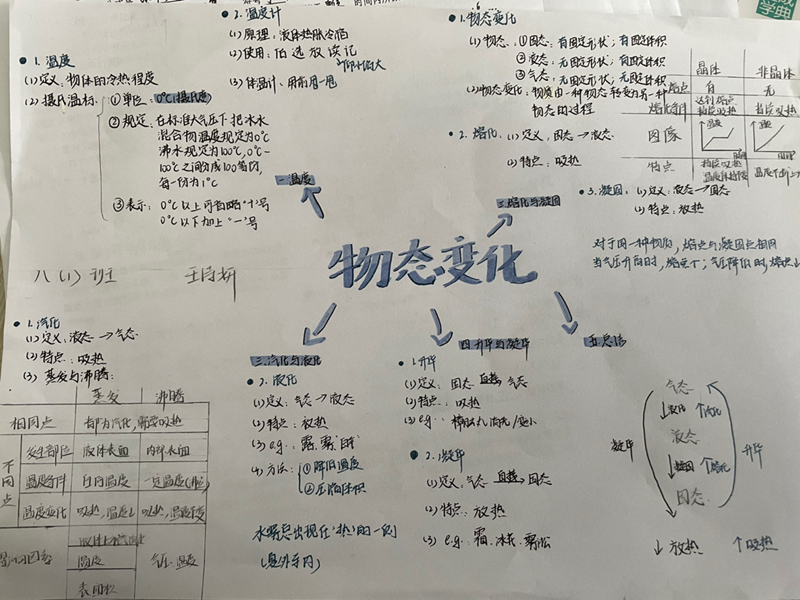 物态变化
八(1)班
一.温度
1. 温度
(1)定义:物体的冷热程度
(2)摄氏温标:①单位:0℃(摄氏度)
②规定:在标准大气压下把冰水
混合物温度规定为0℃
沸水规定为100℃,0℃~
100℃之间分成100等份,
每一份为1℃
③表示:0℃以上可省略"+"号
0℃以下加上"-"号
2. 温度计
(1)原理:液体热胀冷缩
(2)使用:估 选 放 读 记
(3)体温计、用前甩一甩
二.熔化与凝固
1. 物态变化
(1)物态:①固态:有固定形状;有固定体积
②液态:无固定形状;有固定体积
③气态:无固定形状;无固定体积
(2)物态变化:物质由一种物态转变为另一种
物态的过程
2. 熔化. (1)定义,固态→液态
(2)特点:吸热
晶体 非晶体
熔点 有 无
熔化条件 达到熔点 持续吸热 持续吸热
图像 温度 时间 温度 时间
特点 持续吸热
3. 凝固:(1)定义:液态→固态
(2)特点:放热
对于同一种物质,熔点与凝固点相同
当气压升高时,熔点↑;气压降低时,熔点↓
三.汽化与液化
1. 汽化
(1)定义:液态→气态
(2)特点:吸热
(3)蒸发与沸腾:
蒸发 沸腾
相同点 都为汽化,需要吸热
不同点 发生部位 液体表面 内部表面
温度条件 任何温度
温度变化 吸热,温度↓ 吸热,温度不变
温度 气压
表面积
2. 液化
(1)定义:气态→液态
(2)特点:放热
(3)e.g.:露.雾.白气
(4)方法:①降低温度
②压缩体积
水雾总出现在"热"的一侧
四.升华与凝华
1. 升华
(1)定义:固态 直接→ 气态
(2)特点:吸热
(3)e.g.:樟脑丸消失/变小
2. 凝华
(1)定义:气态 直接→ 固态
(2)特点:放热
(3)e.g.:霜.冰花.雾凇
五.总结
气态
↓液化 ↑汽化
液态
凝华 升华
↓凝固 ↑熔化
固态
↓放热 ↑吸热